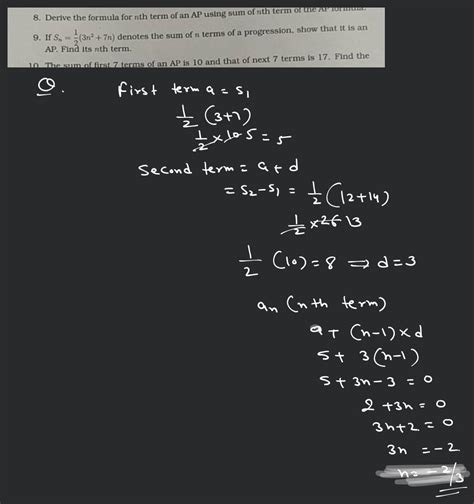 8. Derive the formula for nth term of an AP using sum of nth term of the AP formula.
9. If Sₙ = 1/2(3n² + 7n) denotes the sum of n terms of a progression, show that it is an
AP. Find its nth term.
10. The sum of first 7 terms of an AP is 10 and that of next 7 terms is 17. Find the
Q. first term a = S₁
1/2 (3+7)
1/2 × 10 5 = 5
Second term = a + d
= S₂ - S₁ = 1/2 (12+14)
1/2 × 26 13
1/2 (10) = 8 ⇒ d = 3
aₙ (nth term)
a + (n-1) × d
5 + 3(n-1)
5 + 3n - 3 = 0
2 + 3n = 0
3n + 2 = 0
3n = -2
n = -2/3